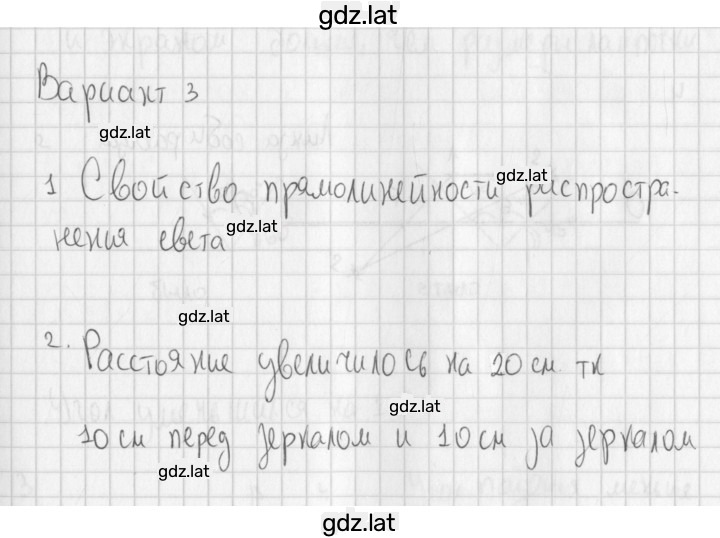 gdz.lat
Вариант 3
gdz.lat
1 Свойство прямолинейности распростра-
gdz.lat
нения света
gdz.lat
gdz.lat
2. Расстояние увеличилось на 20 см. тк
gdz.lat
10 см перед зеркалом и 10 см за зеркалом
gdz.lat
gdz.lat